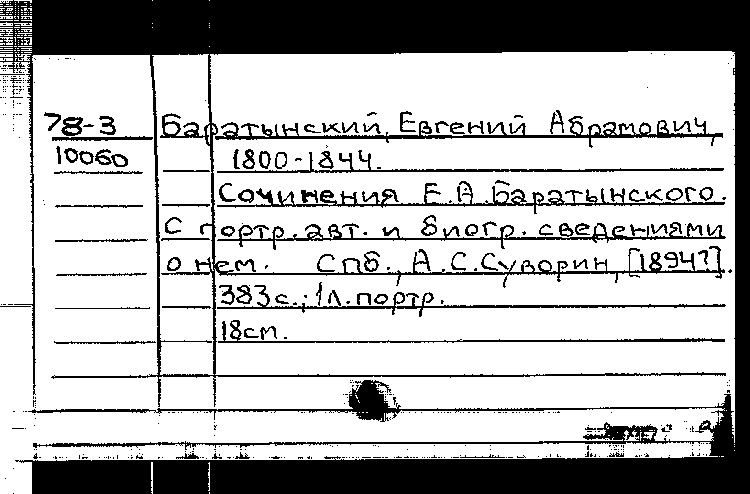 78-3 Баратынский, Евгений Абрамович,
10060 1800-1844.
Сочинения Е.А.Баратынского.
С портр. авт. и биогр. сведениями
о нем. Спб., А.С.Суворин, [1894?].
383с.; 1л. портр.
18см.